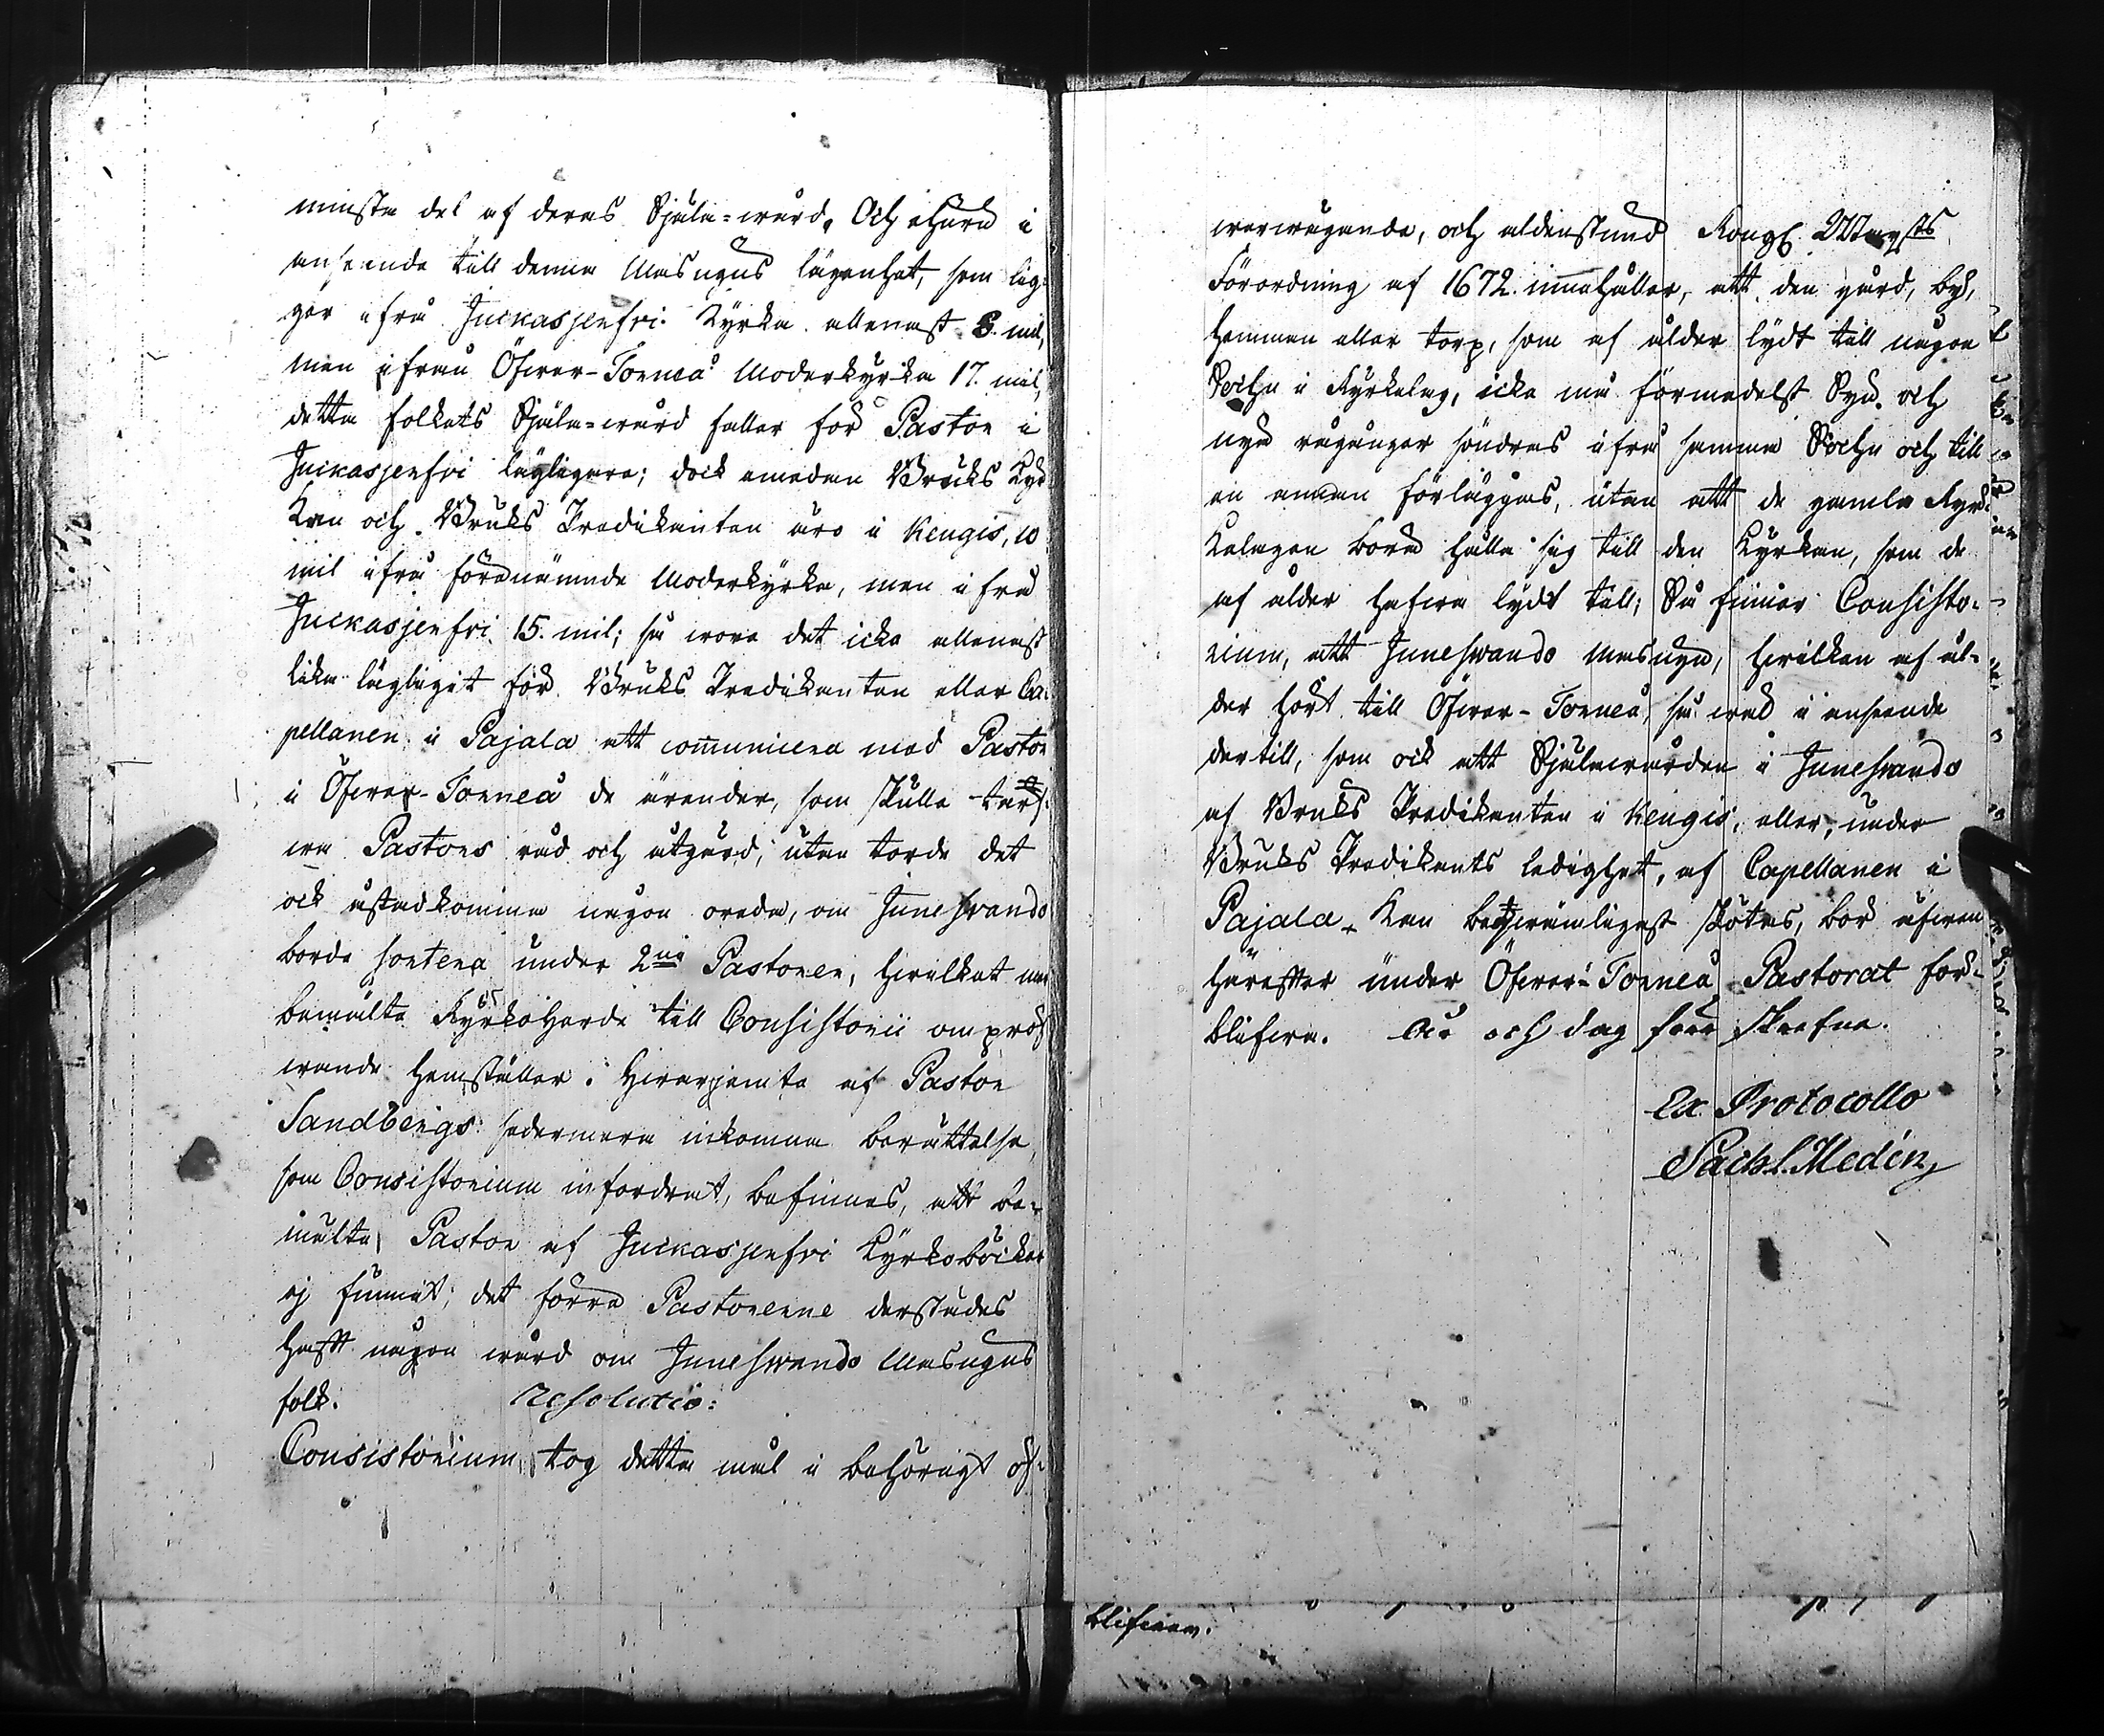 minsta del af deras Själa=wård. Och ehuru i
anseende till denna Masugns lägenhet, som lig-
ger ifrå Juckasjerfvi Kyrka allenast 8. mil,
men ifrån Öfwer-Torneå Moderkyrka 17. mil,
detta folkets Själa=wård faller för Pastor i
Juckasjerfvi lägligare; dock emedan Bruks Kyr
kan och Bruks Predikanten äro i Kengis, 10
mil ifrå förenämnde Moderkyrka, men ifrå
Juckasjerfvi 15. mil; så wore det icke allenast
lika lägligit för Bruks Predikanten eller Ca-
pellanen i Pajala att communicera med Pastor
i Öfwer-Torneå de ärender, som skulle tarf-
wa Pastors råd och åtgärd, utan torde det
ock åstadkomma någon oreda, om Junesvando
borde sortera under 2ne Pastorer, hwilket
bemälte Kyrkoherde till Consistorii ompröf
wande hemställer. Hwarjemte af Pastor
Sandbergs sedermera inkomne berättelse,
som Consistorium infordrat, befinnes, att be-
mälte Pastor af Juckasjerfvi Kyrkoböcker
ej funnit, det förra Pastorerne derstädes
haft någon wård om Junesvando Masugns
folk. Resolutio:
Consistorium tog detta mål i behörigt öf-
werwägande, och aldenstund Kongl. Mayts
Förordning af 1672. innehåller, att den gård, by,
hemman eller torp, som af ålder lydt till någon
Sochn i Kyrkelag, icke må förmedelst Syn och
nya rågångar söndras ifrå samma Sochn och till
en annan förläggas, utan att de gamla Kyr-
kelagen böra hålla sig till den Kyrkan, som de
af ålder hafwa lydt till; Så finner Consisto-
rium, att Junesvando Masugn, hwilken af ål-
der hört till Öfwer-Torneå, så wäl i anseende
dertill, som ock att Själawården i Junesvando
af Bruks Predikanten i Kengis, eller, under
Bruks Predikants ledighet, af Capellanen i
Pajala kan beqwämligast skötas, bör äfwen
härefter under Öfwer-Torneå Pastorat för-
blifwa. År och dag som skrefne.
Ex Protocollo
Medin
blifwa.